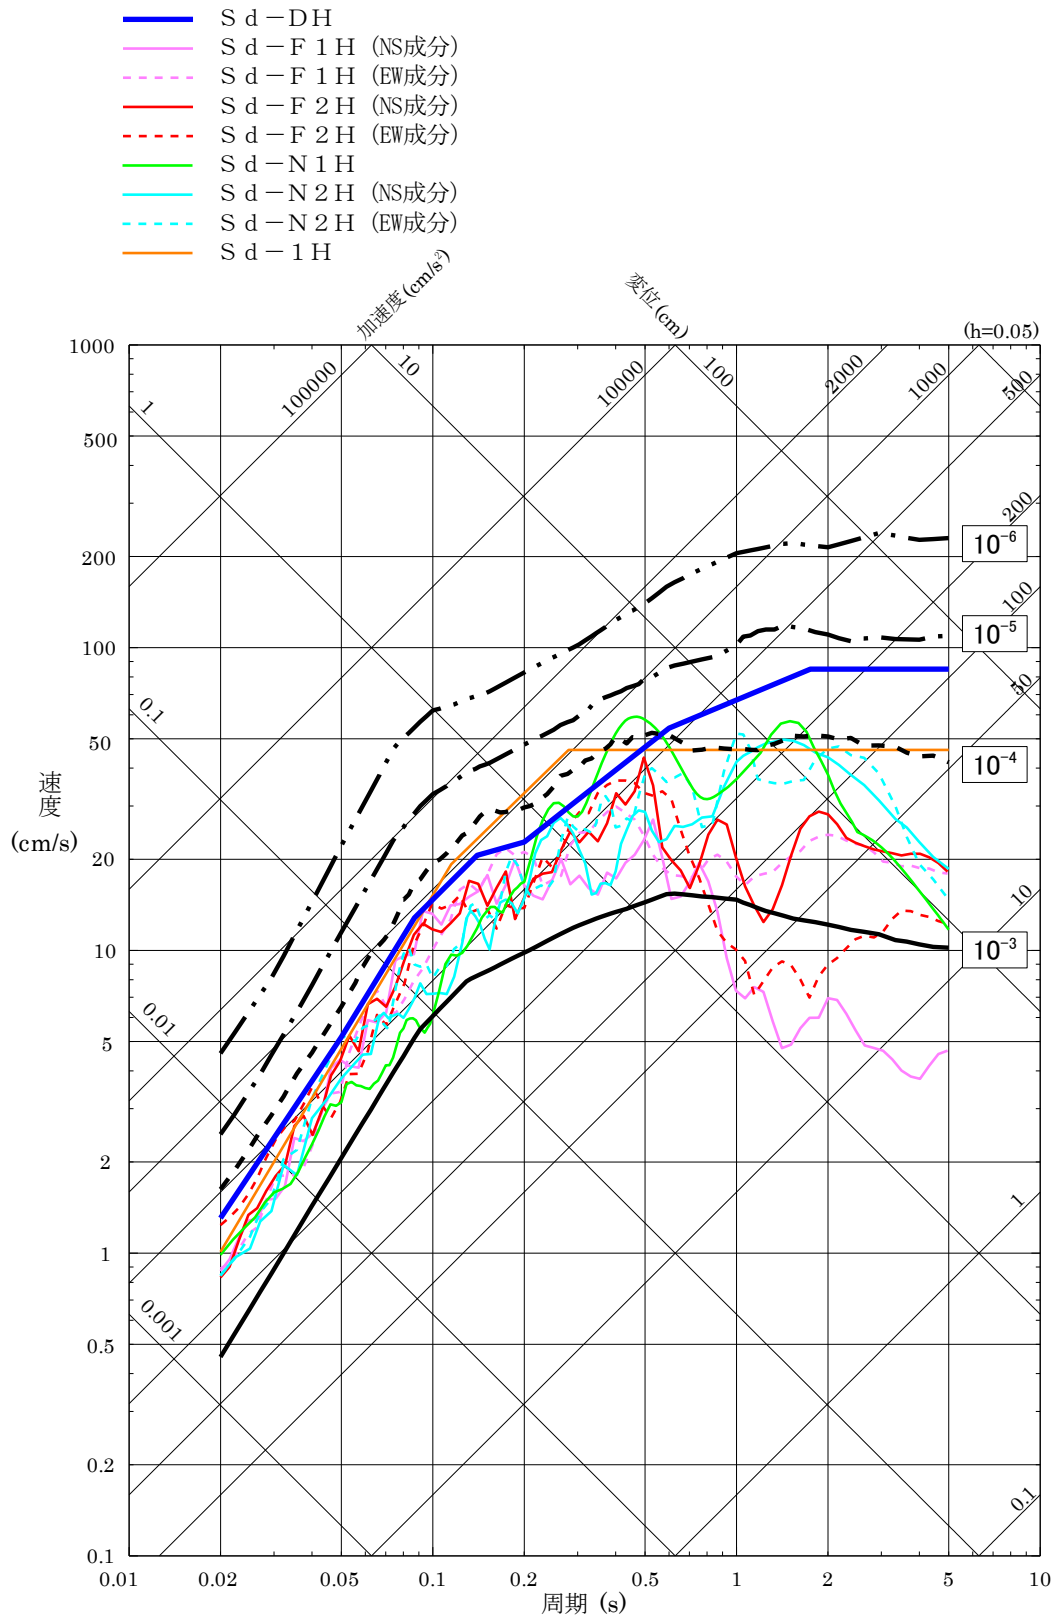 Ｓｄ－ＤＨ
Ｓｄ－Ｆ１Ｈ (NS成分)
Ｓｄ－Ｆ１Ｈ (EW成分)
Ｓｄ－Ｆ２Ｈ (NS成分)
Ｓｄ－Ｆ２Ｈ (EW成分)
Ｓｄ－Ｎ１Ｈ
Ｓｄ－Ｎ２Ｈ (NS成分)
Ｓｄ－Ｎ２Ｈ (EW成分)
Ｓｄ－１Ｈ
加速度(cm/s²)
変位(cm)
(h=0.05)
1000
500
200
100
50
20
10
5
2
1
0.5
0.2
0.1
速度
(cm/s)
1
0.1
0.01
0.001
100000
10
10000
100
2000
1000
500
200
100
50
10
1
0.1
10⁻⁶
10⁻⁵
10⁻⁴
10⁻³
0.01 0.02 0.05 0.1 0.2 0.5 1 2 5 10
周期 (s)